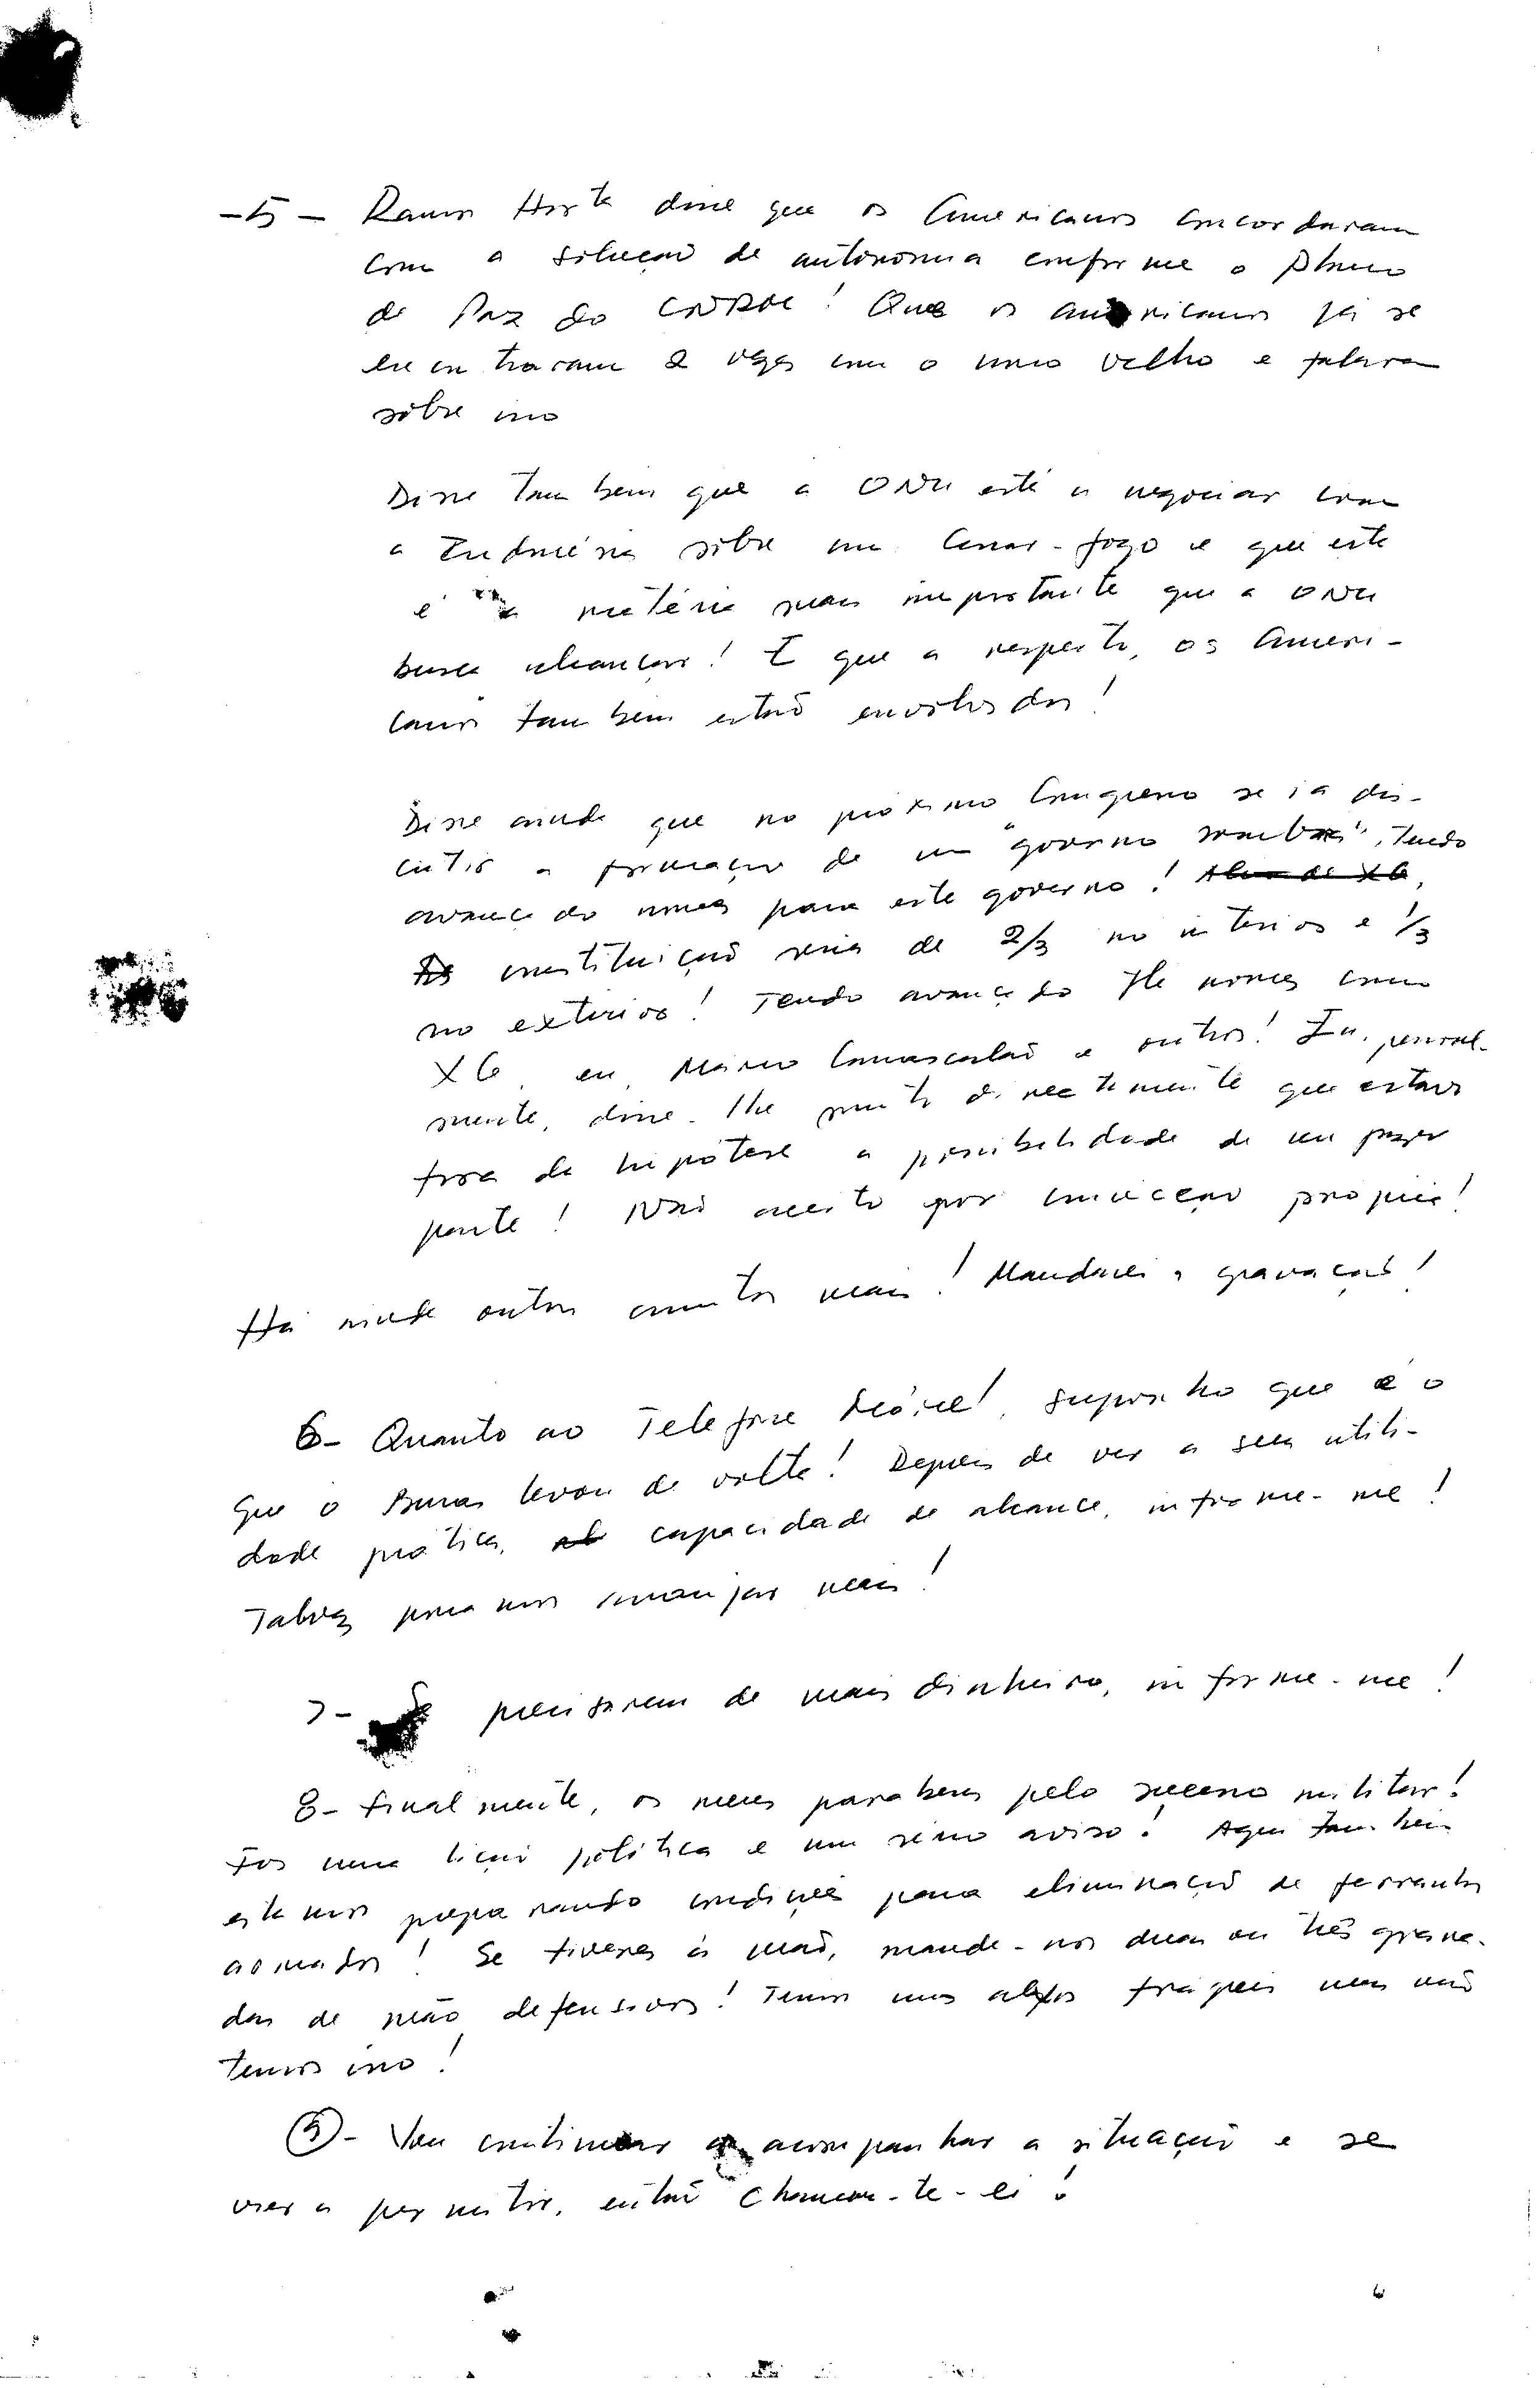 -5- Ramos Horta disse que os Americanos concordaram
com a solução de autonomia conforme o Plano
de Paz do CNRM! Que os americanos já se
encontraram 2 vezes com o velho e falara
sôbre isso
Disse tambem que a ONU está a negociar com
a Indonésia sôbre um cessar-fogo e que este
é a matéria mais importante que a ONU
busca alcançar! E que a respeito, os Ameri-
canos tambem estão envolvidos!
Disse ainda que no próximo Congresso se ia dis-
cutir a formação de um "governo sombra", tendo
avançado nomes para este governo!
constituição seria de 2/3 no interior e 1/3
no exterior! Tendo avançado -lhe nomes como
XG, eu, Mário Carrascalão e outros! Eu, pessoal-
mente, disse-lhe muito directamente que estava
fora de hipótese a possibilidade de eu fazer
parte! Não aceito por convicção própria!
Há ainda outros mais! Mandarei a gravação!
6- Quanto ao Telefone, suponho que é o
que o levou de volta! Depois de ver a sua utili-
dade prática, capacidade de alcance, informe-me!
Talvez possamos arranjar mais!
7- Se precisarem de mais dinheiro, informe-me!
8- Finalmente, os meus parabens pelo sucesso militar!
Foi uma lição política e um sério aviso! Aqui tambem
estamos preparando condições para eliminação de
armados! Se tiveres à mão, mande-nos duas ou três grana-
das de mão defensivas! Temos uns alvos frágeis mas não
temos isso!
9- Vou continuar a acompanhar a situação e se
vier a permitir, então chamar-te-ei!